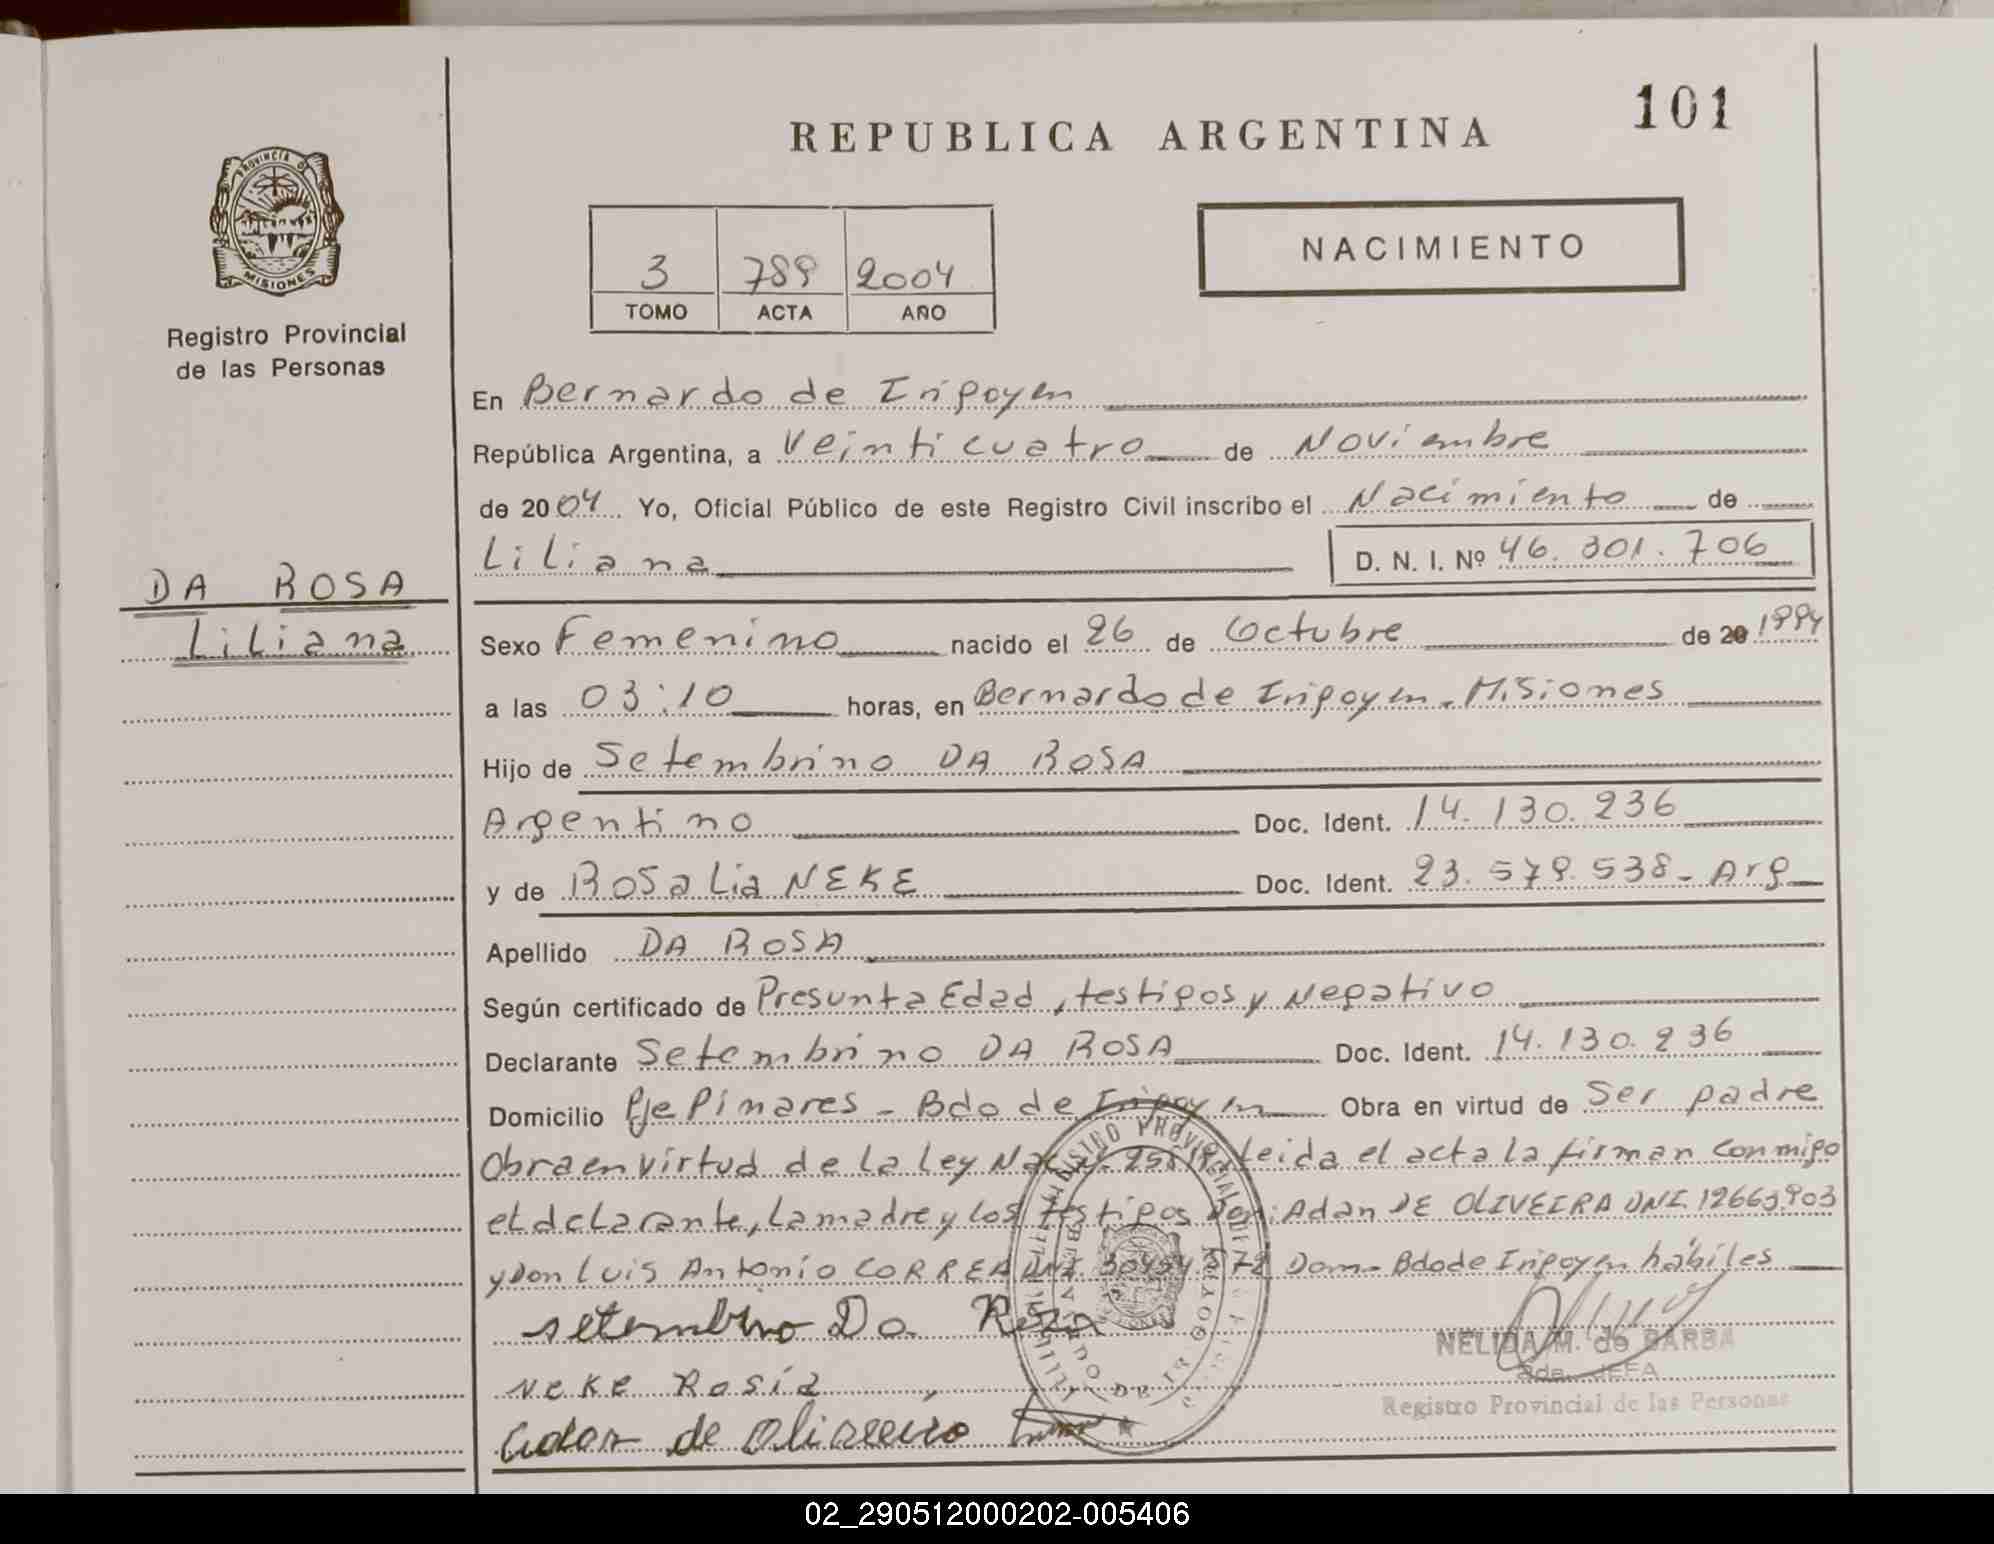 101
REPUBLICA ARGENTINA
PROVINCIA D
MISIONES
Registro Provincial
de las Personas
NACIMIENTO
3 789 2004
TOMO ACTA AÑO
En Bernardo de Irigoyen
República Argentina, a Veinticuatro de Noviembre
de 2004 Yo, Oficial Público de este Registro Civil inscribo el Nacimiento de
Liliana D. N. I. Nº 46.301.706
DA ROSA
Liliana
Sexo Femenino nacido el 26 de Octubre de 20 1994
a las 03:10 horas, en Bernardo de Irigoyen - Misiones
Hijo de Setembrino DA ROSA
Argentino Doc. Ident. 14.130.236
y de Rosalia NEKE Doc. Ident. 23.579.538 - Arg
Apellido DA ROSA
Según certificado de Presunta Edad, testigos y Negativo
Declarante Setembrino DA ROSA Doc. Ident. 14.130.236
Domicilio Pje Pinares - Bdo de Irigoyen Obra en virtud de Ser padre
Obra en virtud de la Ley leida el acta la firman conmigo
el dclarante, la madre y los testigos Don: Adan DE OLIVEIRA DNI. 12663903
y Don Luis Antonio CORREA DNI. Dom- Bdo de Irigoyen hábiles
setembrino Da Roza
NEKE Rosia
de
NELIDA M. de BARBA
2da. JEFA
Registro Provincial de las Personas
REGISTRO PROVINCIAL DE
BERNARDO DE IRIGOYEN
02_290512000202-005406